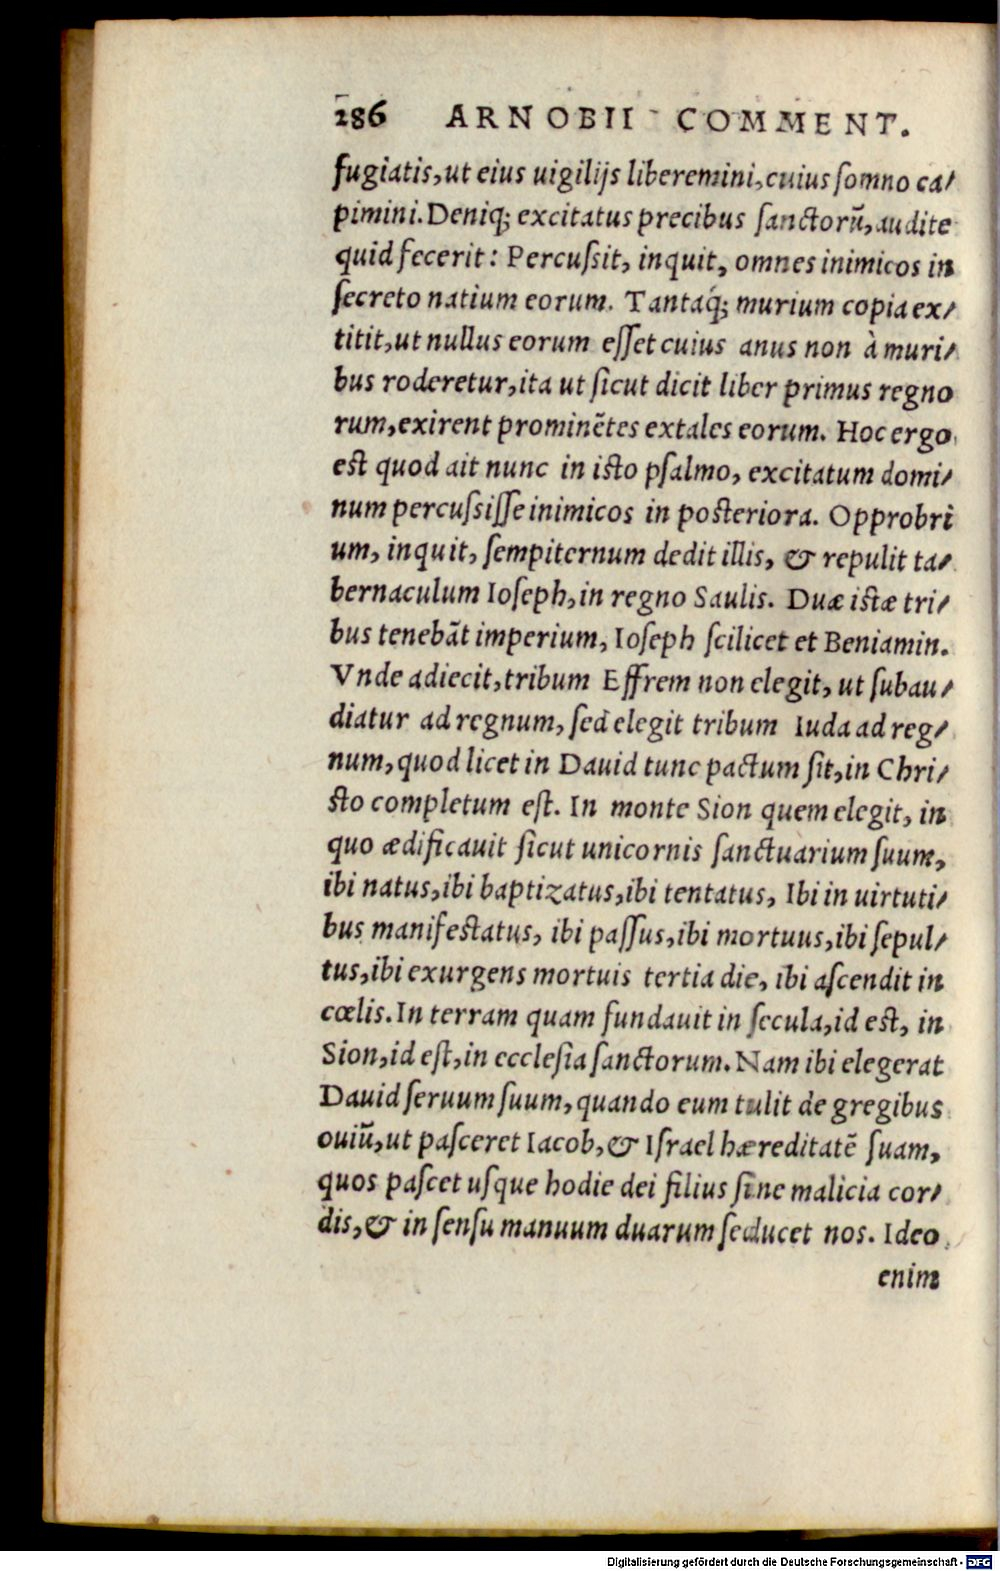 286 ARNOBII COMMENT.
fugiatis, ut eius uigilijs liberemini, cuius somno ca/
pimini. Deniq; excitatus precibus sanctorũ, audite
quid fecerit: Percussit, inquit, omnes inimicos in
secreto natium eorum. Tantaq́; murium copia ex/
titit, ut nullus eorum esset cuius anus non à muri/
bus roderetur, ita ut sicut dicit liber primus regno
rum, exirent prominẽtes extales eorum. Hoc ergo
est quod ait nunc in isto psalmo, excitatum domi/
num percussisse inimicos in posteriora. Opprobri
um, inquit, sempiternum dedit illis, & repulit ta/
bernaculum Ioseph, in regno Saulis. Duæ istæ tri/
bus tenebãt imperium, Ioseph scilicet et Beniamin.
Vnde adiecit, tribum Effrem non elegit, ut subau/
diatur ad regnum, sed elegit tribum Iuda ad reg/
num, quod licet in Dauid tunc pactum sit, in Chri/
sto completum est. In monte Sion quem elegit, in
quo ædificauit sicut unicornis sanctuarium suum,
ibi natus, ibi baptizatus, ibi tentatus, Ibi in uirtuti/
bus manifestatus, ibi passus, ibi mortuus, ibi sepul/
tus, ibi exurgens mortuis tertia die, ibi ascendit in
cœlis. In terram quam fundauit in secula, id est, in
Sion, id est, in ecclesia sanctorum. Nam ibi elegerat
Dauid seruum suum, quando eum tulit de gregibus
ouiũ, ut pasceret Iacob, & Israel hæreditatẽ suam,
quos pascet usque hodie dei filius sine malicia cor/
dis, & in sensu manuum duarum seducet nos. Ideo
enim
Digitalisierung gefördert durch die Deutsche Forschungsgemeinschaft - DFG